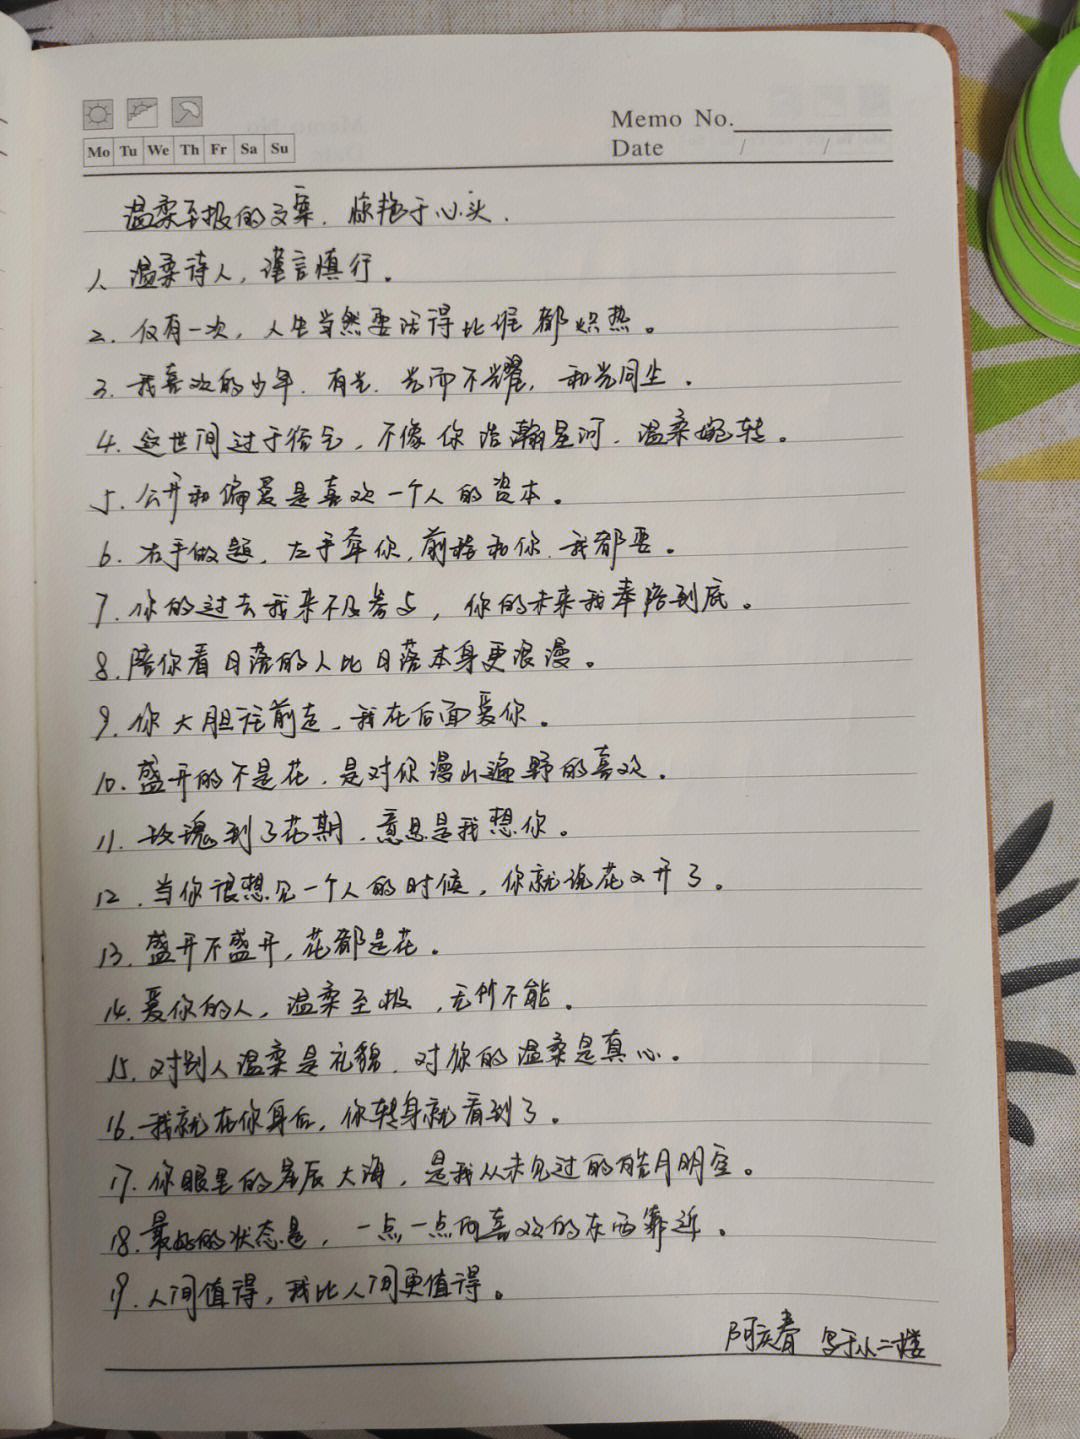 Mo Tu We Th Fr Sa Su
Memo No.
Date / /
温柔至极的文案. 惊艳于心头.
1. 温柔待人, 谨言慎行.
2. 仅有一次, 人生当然要活得比谁都炽热。
3. 我喜欢的少年. 有光. 光而不耀, 和光同尘.
4. 这世间过于俗气, 不像你浩瀚星河. 温柔婉转。
5. 公开和偏爱是喜欢一个人的资本。
6. 右手做题, 左手牵你, 前程和你. 我都要。
7. 你的过去我来不及参与, 你的未来我奉陪到底。
8. 陪你看日落的人比日落本身更浪漫。
9. 你大胆往前走, 我在后面爱你。
10. 盛开的不是花. 是对你漫山遍野的喜欢.
11. 玫瑰到了花期. 意思是我想你。
12. 当你很想见一个人的时候, 你就说花又开了。
13. 盛开不盛开, 花都是花。
14. 爱你的人, 温柔至极, 无所不能。
15. 对别人温柔是礼貌. 对你的温柔是真心。
16. 我就在你身后, 你转身就看到了。
17. 你眼里的星辰大海, 是我从未见过的皓月明空。
18. 最好的状态是, 一点一点向喜欢的东西靠近。
19. 人间值得, 我比人间更值得。
阿庆春 写于小二楼